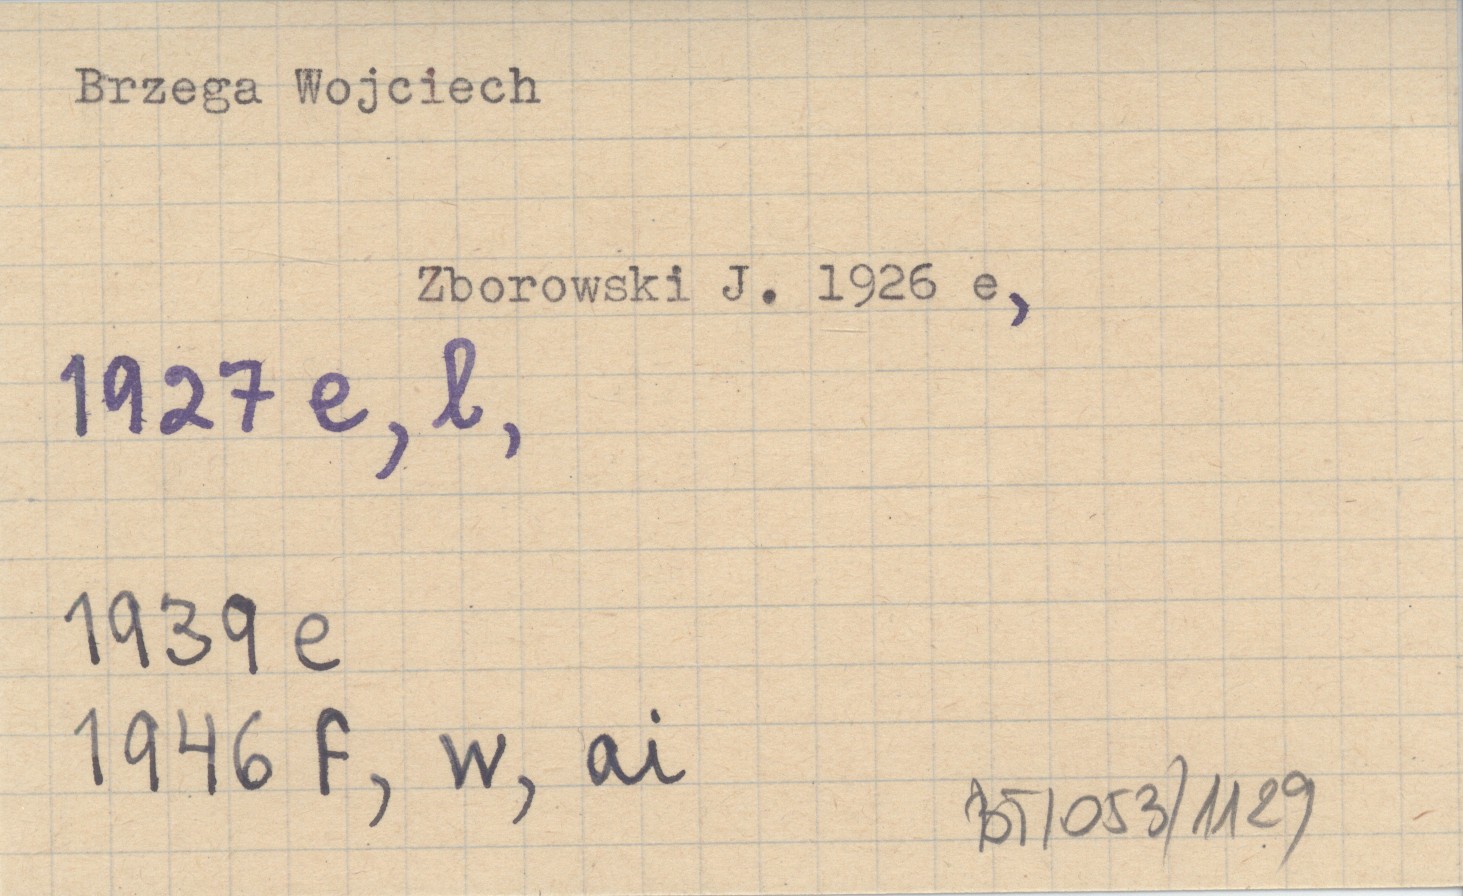 Brzega Wojciech
Zborowski J. 1926 e,
1927 e, l,
1939 e
1946 f, w, ai
BT/053/1129